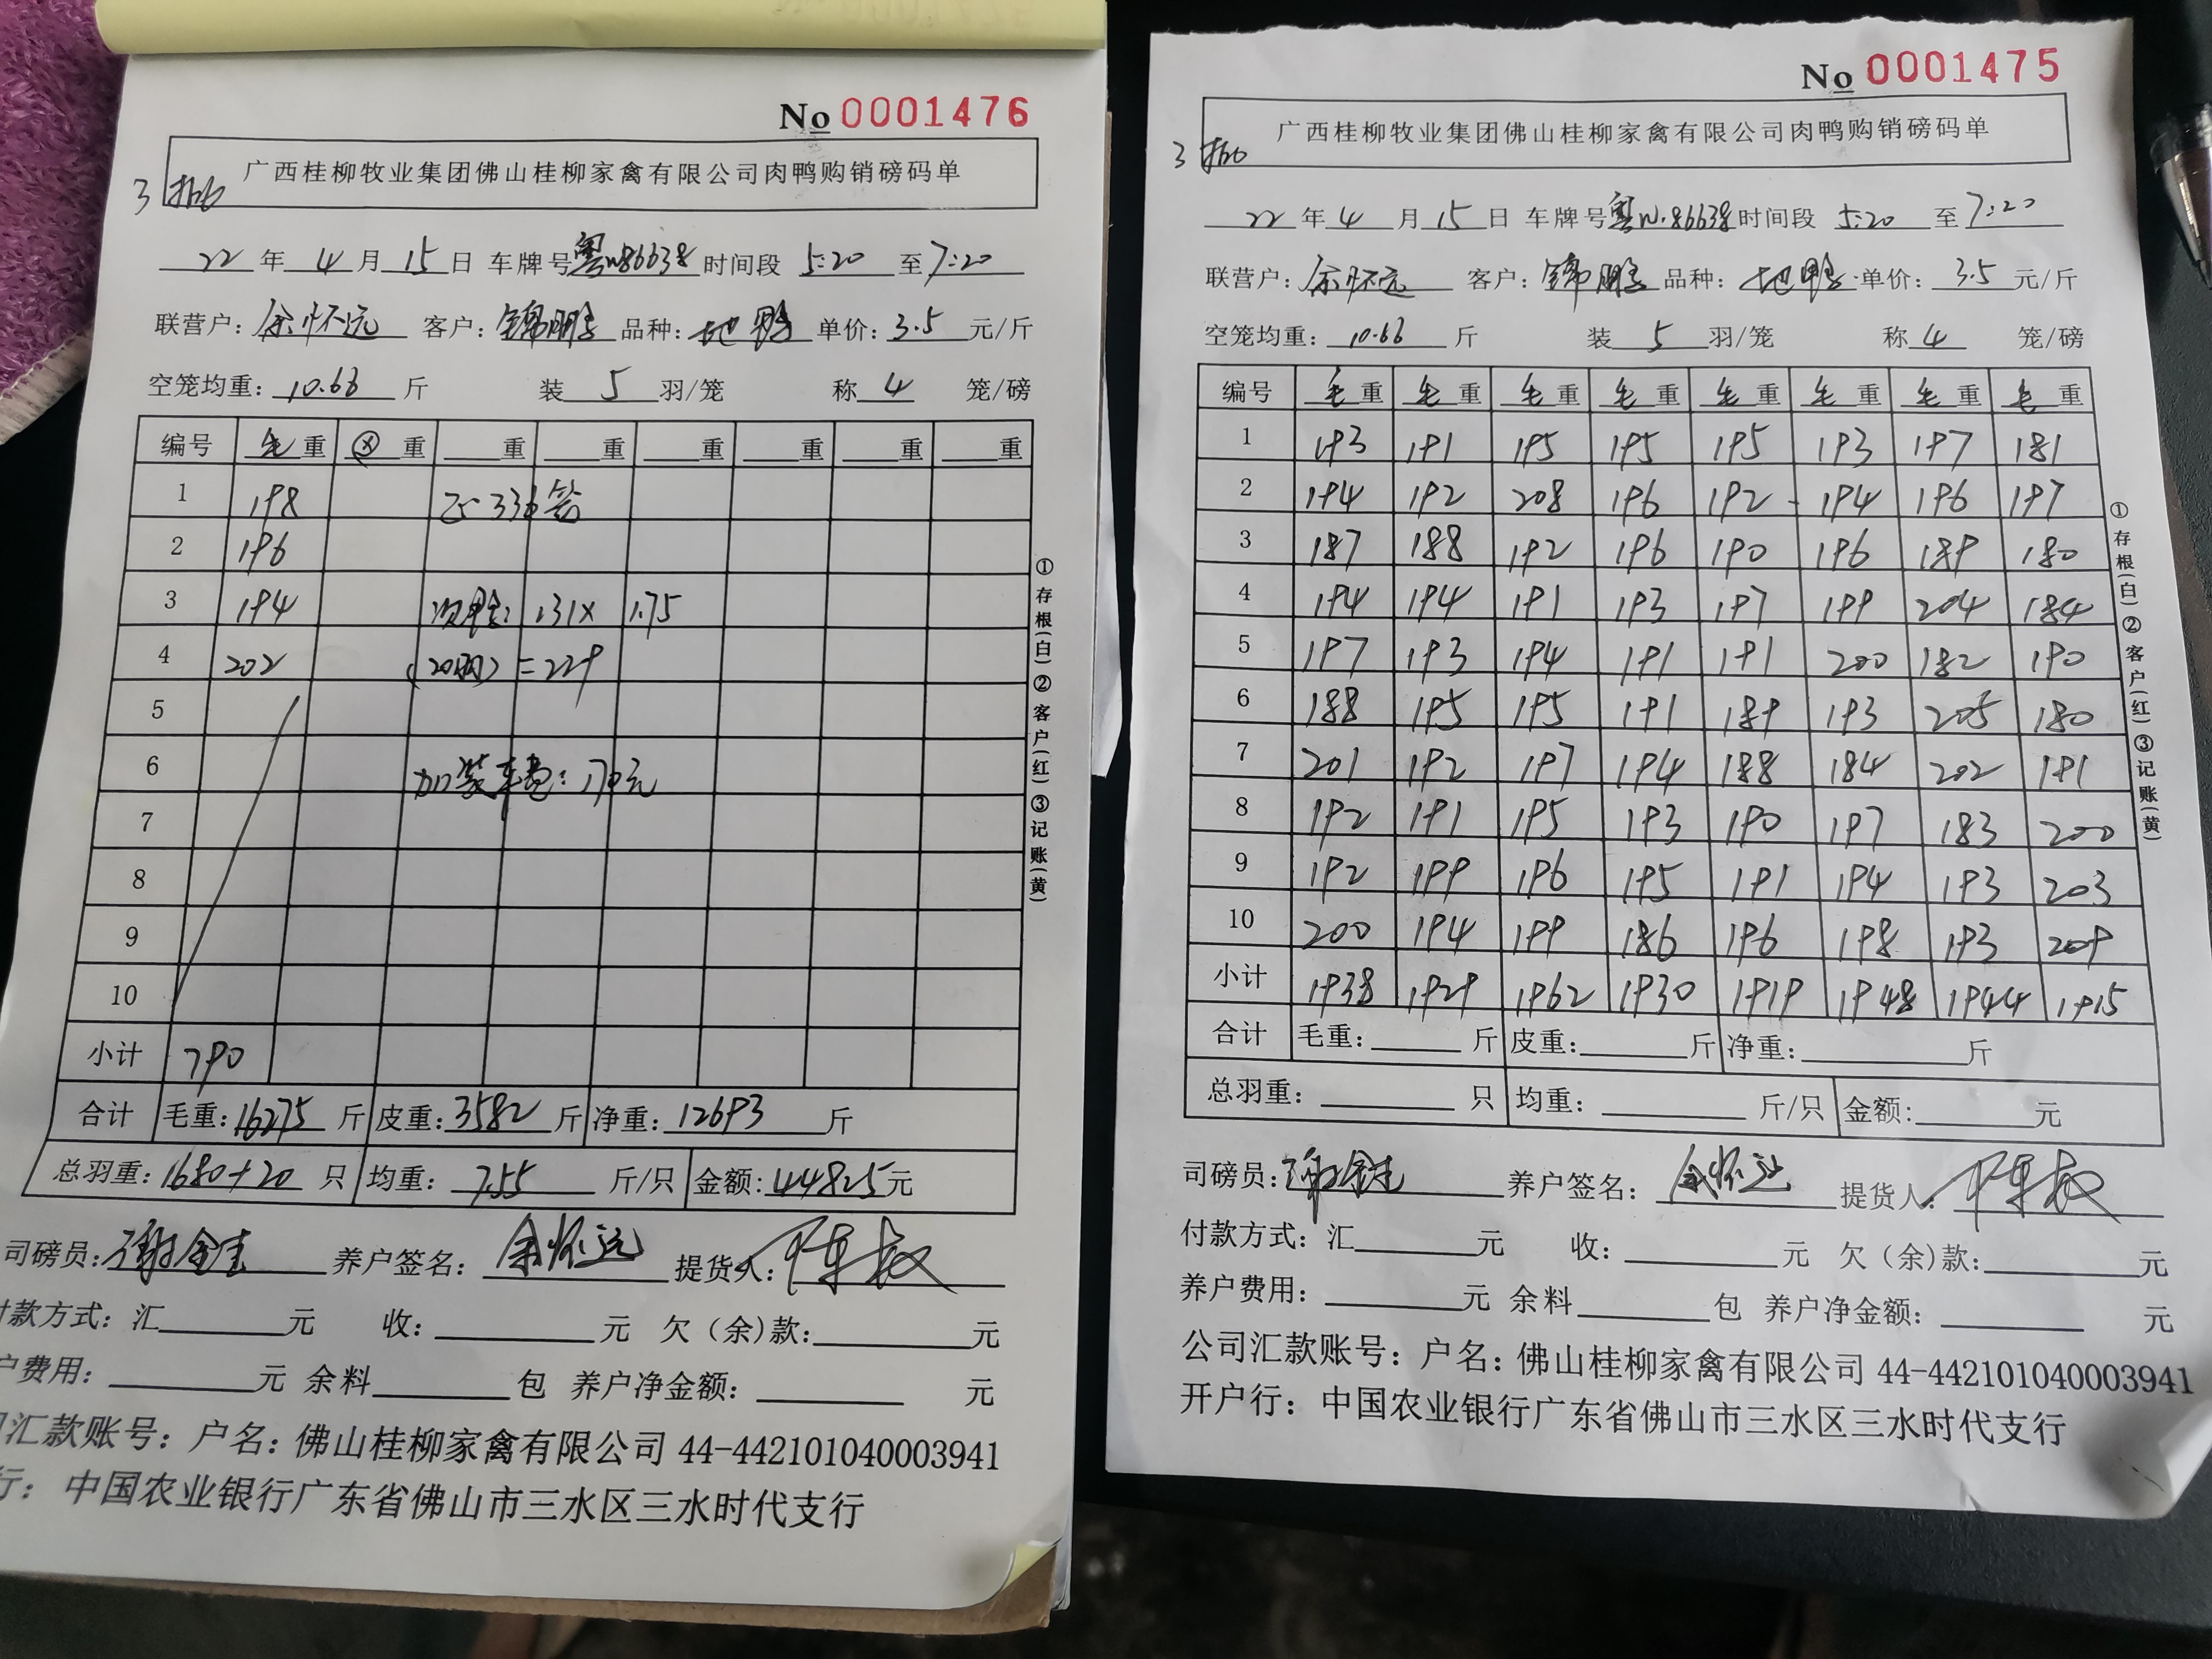 No 0001476
广西桂柳牧业集团佛山桂柳家禽有限公司肉鸭购销磅码单
22 年 4 月 15 日 车牌号 粤W86638 时间段 5:20 至 7:20
联营户: 余怀远 客户: 锦鹏 品种: 地鸭 单价: 3.5 元/斤
空笼均重: 10.66 斤 装 5 羽/笼 称 4 笼/磅
编号 毛 重 重 重 重 重 重 重 重
1 198 336
2 196
3 194 次鸭: 131× 1.75
4 202 (20羽) =229
5
6 加装车费: 170元
7
8
9
10
小计 790
合计 毛重: 16275 斤 皮重: 3582 斤 净重: 12693 斤
总羽重: 1680+20 只 均重: 7.55 斤/只 金额: 44825 元
司磅员: 养户签名: 余怀远 提货人:
付款方式: 汇 元 收: 元 欠(余)款: 元
户费用: 元 余料 包 养户净金额: 元
汇款账号: 户名: 佛山桂柳家禽有限公司 44-442101040003941
行: 中国农业银行广东省佛山市三水区三水时代支行
①存根(白)②客户(红)③记账(黄)
No 0001475
广西桂柳牧业集团佛山桂柳家禽有限公司肉鸭购销磅码单
22 年 4 月 15 日 车牌号 粤W·86638 时间段 5:20 至 7:20
联营户: 余怀远 客户: 锦鹏 品种: 地鸭 单价: 3.5 元/斤
空笼均重: 10.66 斤 装 5 羽/笼 称 4 笼/磅
编号 毛 重 毛 重 毛 重 毛 重 毛 重 毛 重 毛 重 毛 重
1 193 191 195 195 195 193 197 181
2 194 192 208 196 192 194 196 197
3 187 188 192 196 190 196 189 180
4 194 194 191 193 197 199 204 184
5 197 193 194 191 191 200 182 190
6 188 195 195 191 189 193 205 180
7 201 192 197 194 188 184 202 191
8 192 191 195 193 190 197 183 200
9 192 199 196 195 191 194 193 203
10 200 194 199 186 196 198 193 209
小计 1938 1929 1962 1930 1919 1948 1944 1915
合计 毛重: 斤 皮重: 斤 净重: 斤
总羽重: 只 均重: 斤/只 金额: 元
司磅员: 养户签名: 余怀远 提货人:
付款方式: 汇 元 收: 元 欠(余)款: 元
养户费用: 元 余料 包 养户净金额: 元
公司汇款账号: 户名: 佛山桂柳家禽有限公司 44-442101040003941
开户行: 中国农业银行广东省佛山市三水区三水时代支行
①存根(白)②客户(红)③记账(黄)